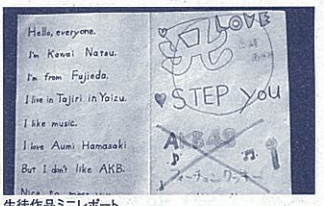 Hello, everyone.
I'm Kawai Natsu.
I'm from Fujieda.
I live in Tajiri in Yaizu.
I like music.
I love Aumi Hamasaki
But I don't like AKB.
Nice to meet you
LOVE
STEP you
AKB48
フォーチュンクッキー
生徒作品ミニレポート